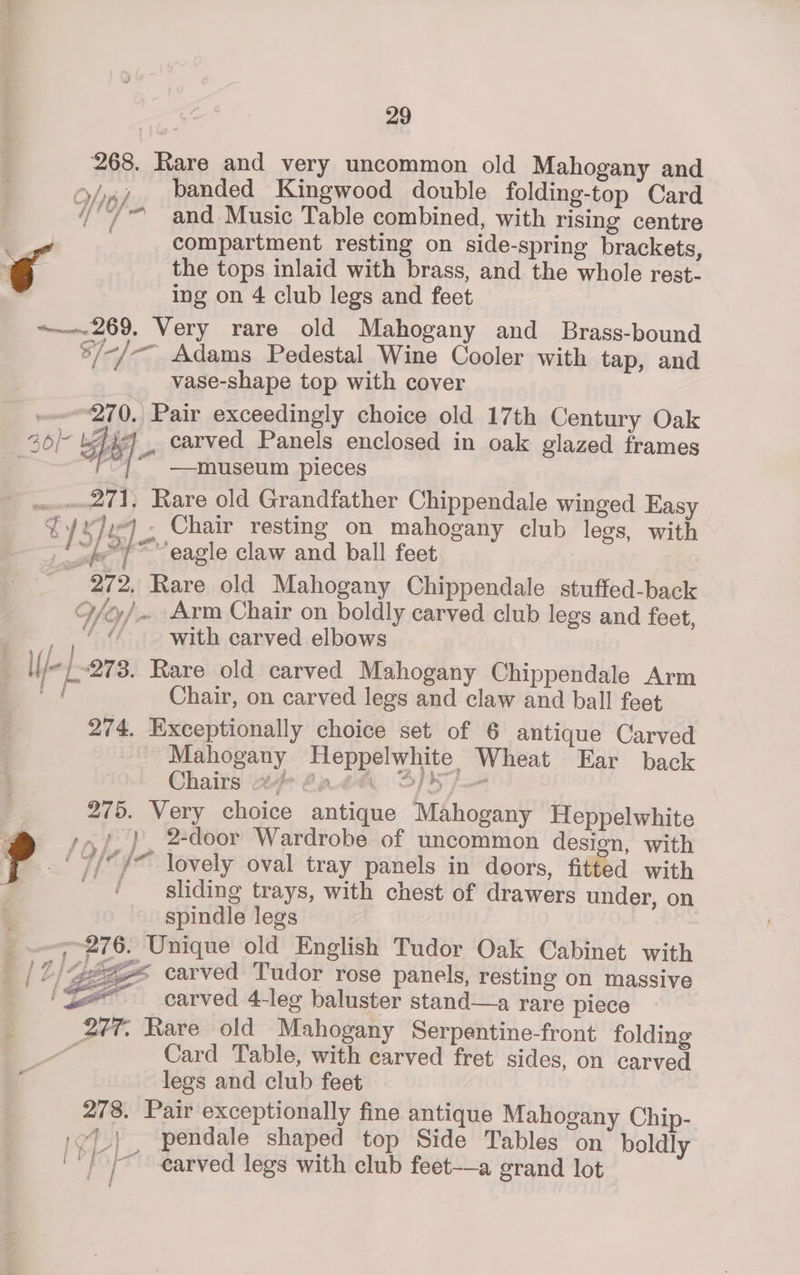 29
268. Rare and very uncommon old Mahogany and
banded Kingwood double folding-top Card
and Music Table combined, with rising centre
compartment resting on side-spring brackets,
the tops inlaid with brass, and the whole rest-
ing on 4 club legs and feet
269. Very rare old Mahogany and Brass-bound
8/-/- Adams Pedestal Wine Cooler with tap, and
vase-shape top with cover
270. Pair exceedingly choice old 17th Century Oak
30/- carved Panels enclosed in oak glazed frames
—museum pieces
271. Rare old Grandfather Chippendale winged Easy
Chair resting on mahogany club legs, with
eagle claw and ball feet
272. Rare old Mahogany Chippendale stuffed-back
Arm Chair on boldly carved club legs and feet,
with carved elbows
273. Rare old carved Mahogany Chippendale Arm
Chair, on carved legs and claw and ball feet
274. Exceptionally choice set of 6 antique Carved
Mahogany Heppelwhite Wheat Ear back
Chairs
275. Very choice antique Mahogany Heppelwhite
2-door Wardrobe of uncommon design, with
lovely oval tray panels in doors, fitted with
sliding trays, with chest of drawers under, on
spindle legs
276. Unique old English Tudor Oak Cabinet with
carved Tudor rose panels, resting on massive
carved 4-leg baluster stand—a rare piece
277. Rare old Mahogany Serpentine-front folding
Card Table, with carved fret sides, on carved
legs and club feet
278. Pair exceptionally fine antique Mahogany Chip-
pendale shaped top Side Tables on boldly
carved legs with club feet—a grand lot